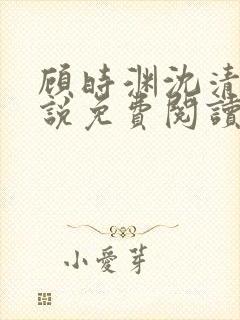 顾時渊沈清
說免費閱讀
小愛芽